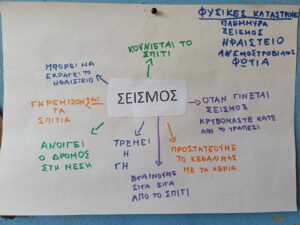 ΦΥΣΙΚΕΣ ΚΑΤΑΣΤΡΟΦΕΣ
ΠΛΗΜΜΥΡΑ
ΣΕΙΣΜΟΣ
ΗΦΑΙΣΤΕΙΟ
ΑΝΕΜΟΣΤΡΟΒΙΛΟΣ
ΦΩΤΙΑ
ΚΟΥΝΙΕΤΑΙ ΤΟ
ΣΠΙΤΙ
ΜΠΟΡΕΙ ΝΑ
ΕΚΡΑΓΕΙ ΤΟ
ΗΦΑΙΣΤΕΙΟ
ΓΚΡΕΜΙΖΟΝΤΑΙ
ΤΑ
ΣΠΙΤΙΑ
ΣΕΙΣΜΟΣ
ΟΤΑΝ ΓΙΝΕΤΑΙ
ΣΕΙΣΜΟΣ
ΚΡΥΒΟΜΑΣΤΕ ΚΑΤΩ
ΑΠΟ ΤΟ ΤΡΑΠΕΖΙ
ΑΝΟΙΓΕΙ
Ο ΔΡΟΜΟΣ
ΣΤΗ ΜΕΣΗ
ΤΡΕΜΕΙ
Η
ΓΗ
ΠΡΟΣΤΑΤΕΥΟΥΜΕ
ΤΟ ΚΕΦΑΛΙ ΜΑΣ
ΜΕ ΤΑ ΧΕΡΙΑ
ΒΓΑΙΝΟΥΜΕ
ΣΙΓΑ ΣΙΓΑ
ΑΠΟ ΤΟ ΣΠΙΤΙ